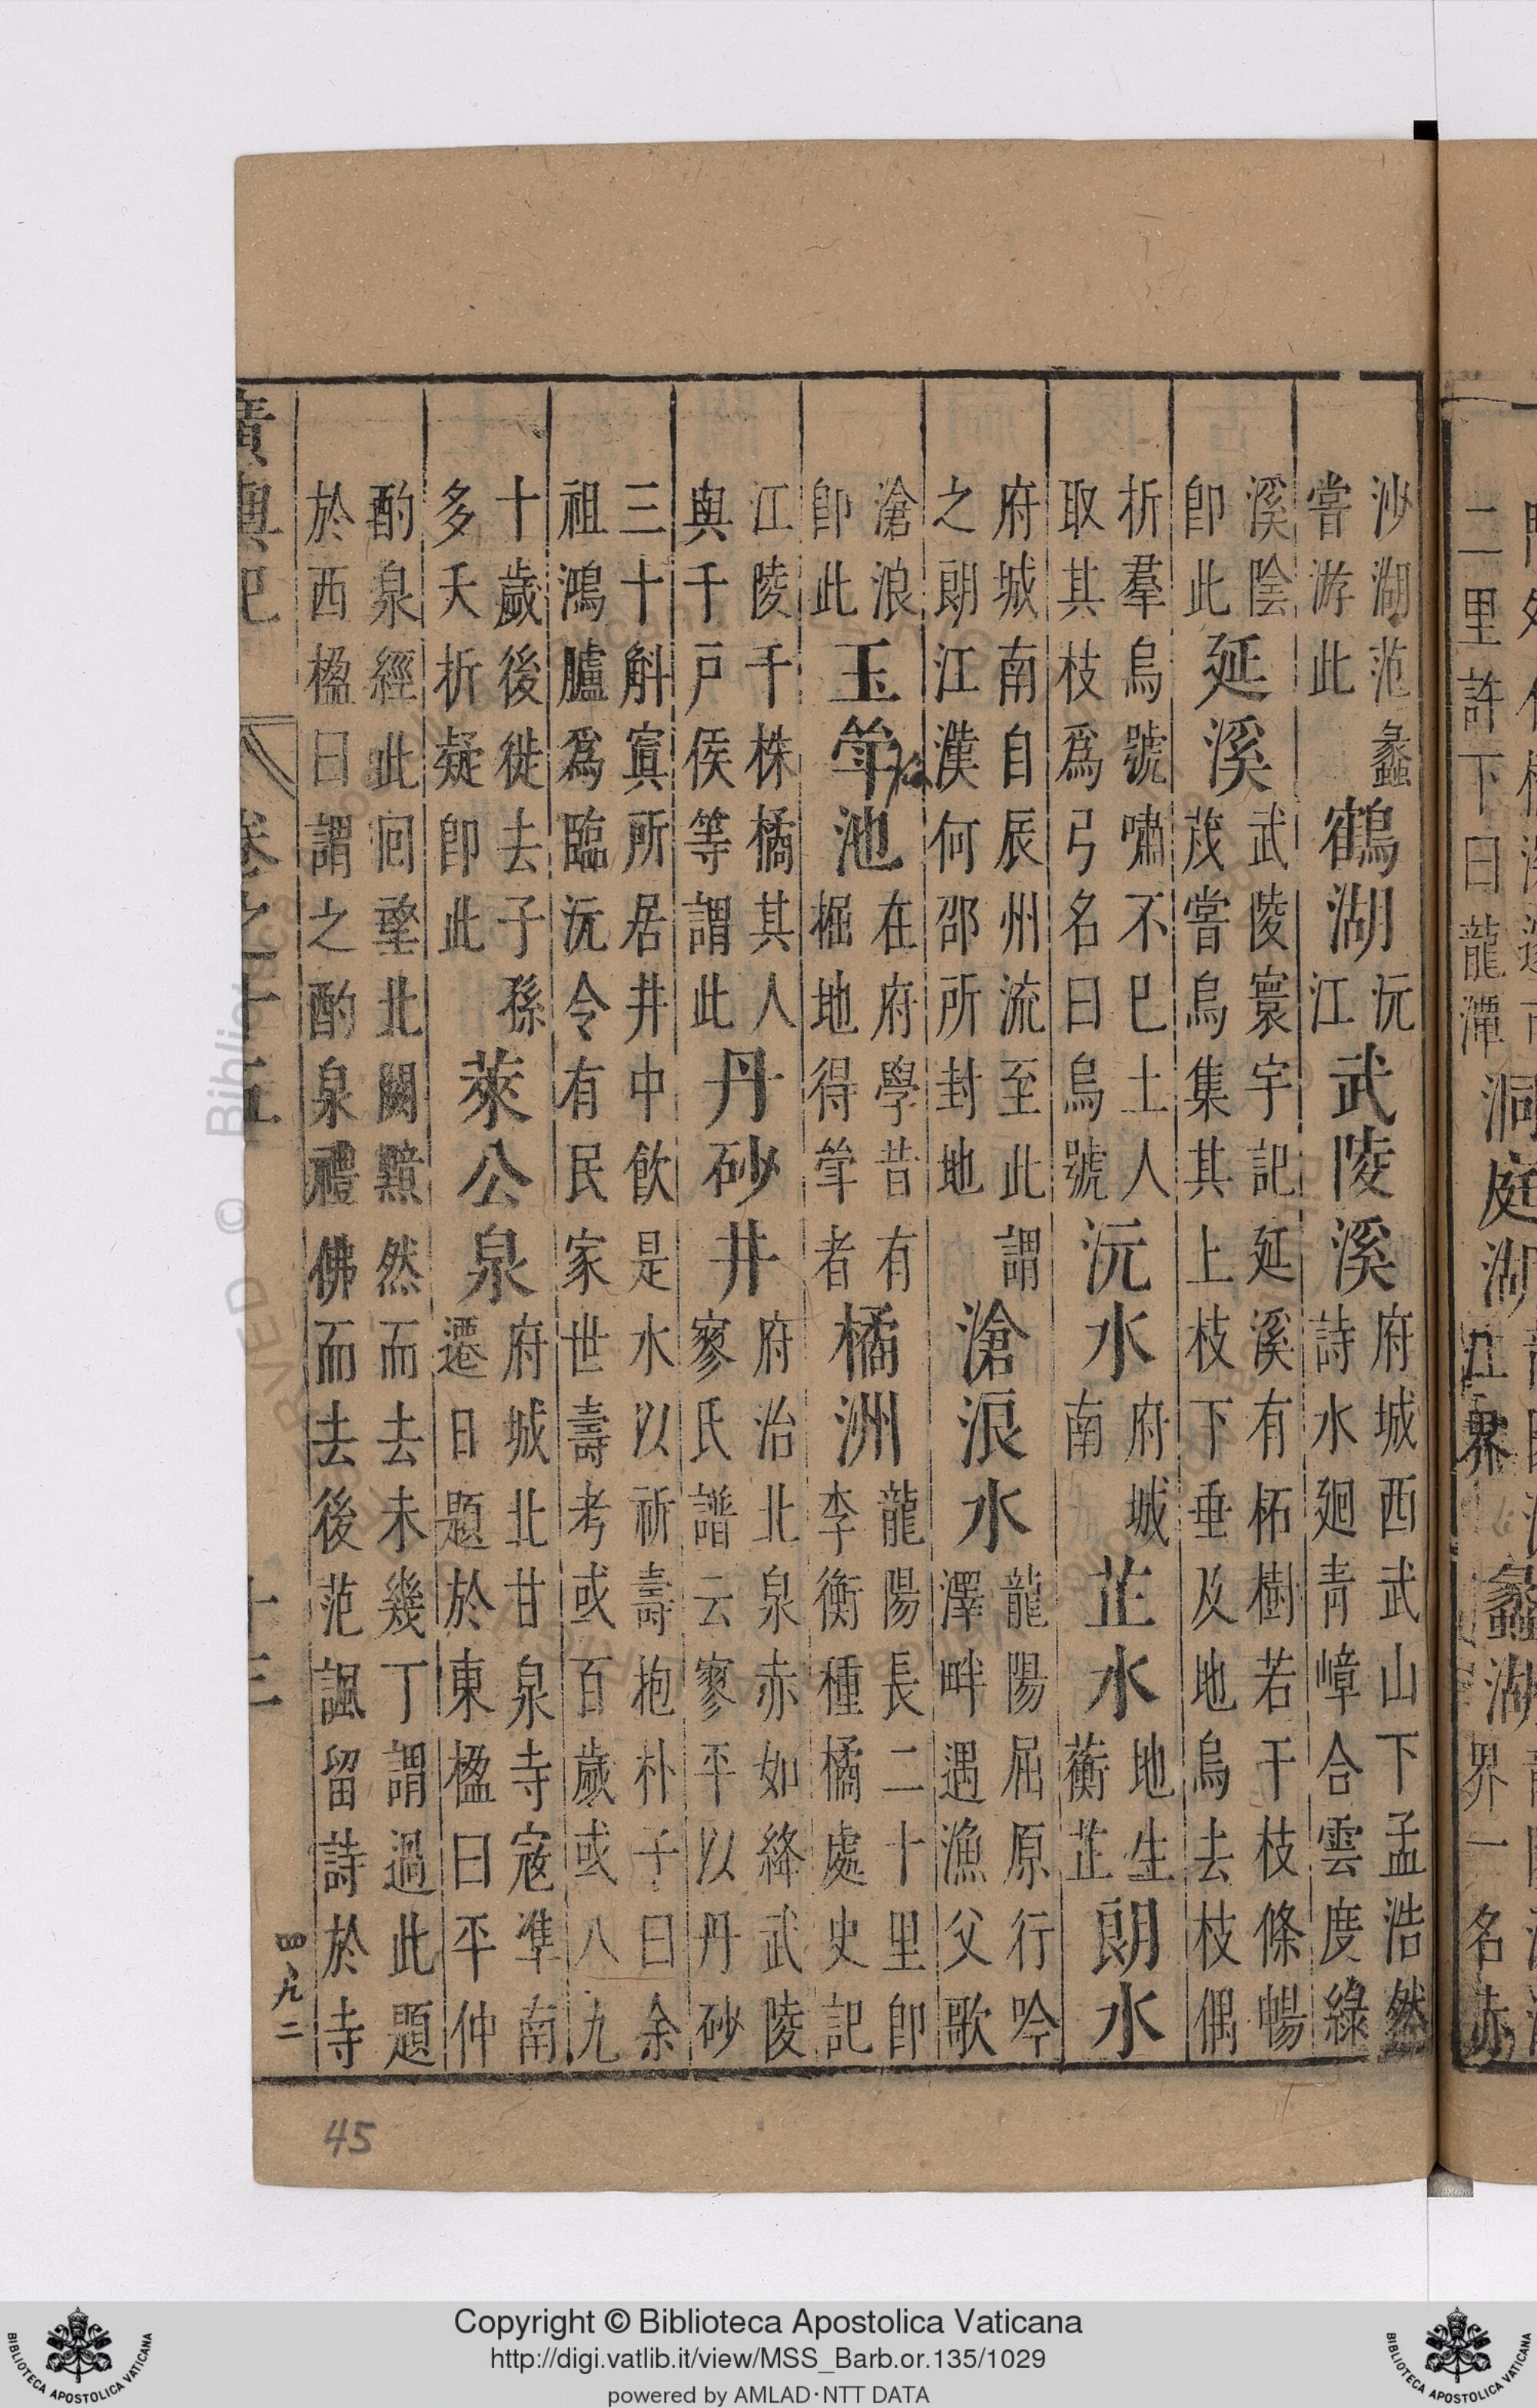 二里許下曰龍潭 洞庭湖 江界 蠡湖 界一名赤
沙湖范蠡嘗游此 鶴湖 沅江 武陵溪 府城西武山下孟浩然詩水廻青嶂合雲度綠
溪陰即此 延溪 武陵寰宇記延溪有柘樹若干枝條暢茂嘗烏集其上枝下垂及地烏去枝偶
折羣烏號嘯不已土人取其枝爲弓名曰烏號 沅水 府城南 芷水 地生蘅芷 朗水
府城南自辰州流至此謂之朗江漢何邵所封地 滄浪水 龍陽屈原行吟澤畔遇漁父歌
滄浪即此 玉笋池 在府學昔有掘地得笋者 橘洲 龍陽長二十里即李衡種橘處史記
江陵千株橘其人與千戸侯等謂此 丹砂井 府治北泉赤如絳武陵寥氏譜云寥平以丹砂
三十斛寘所居井中飲是水以祈壽抱朴子曰余祖鴻臚爲臨沅令有民家世壽考或百歲或八九
十歲後徙去子孫多夭折疑即此 萊公泉 府城北甘泉寺宼凖南遷日題於東楹曰平仲
酌泉經此囘望北闕黯然而去未幾丁謂過此題於西楹曰謂之酌泉禮佛而去後范諷留詩於寺
廣輿記 卷之十五 十三
四九二
45
Copyright © Biblioteca Apostolica Vaticana
http://digi.vatlib.it/view/MSS_Barb.or.135/1029
powered by AMLAD·NTT DATA
BIBLIOTECA APOSTOLICA VATICANA
BIBLIOTECA APOSTOLICA VATICANA